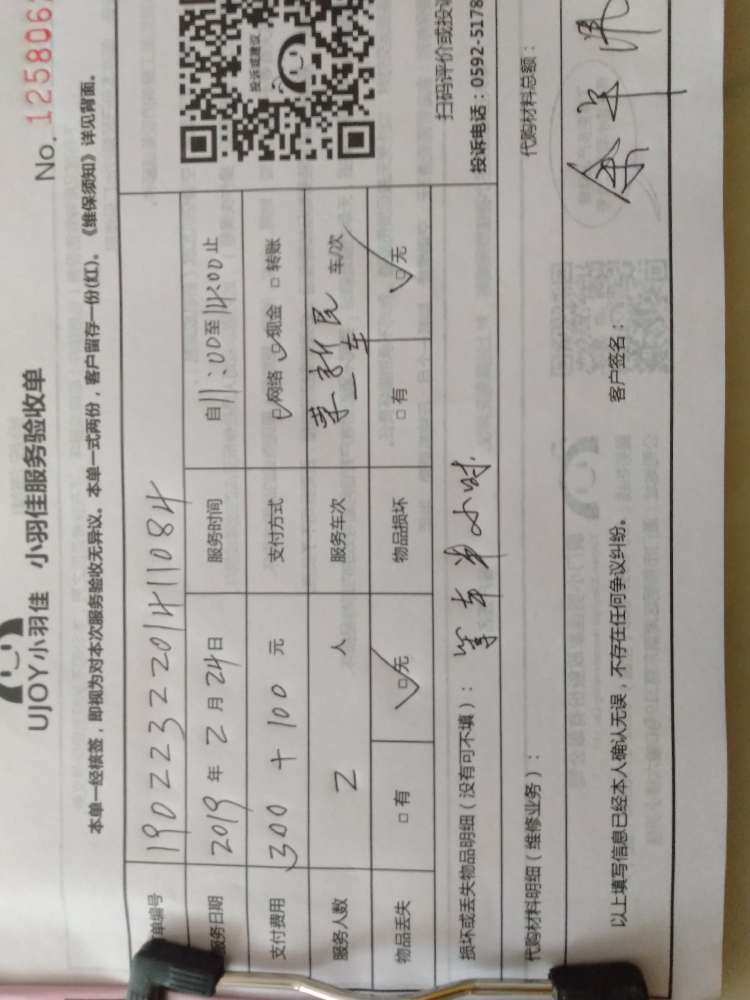 No. 1258062
UJOY小羽佳 小羽佳服务验收单
本单一经核签，即视为对本次服务验收无异议。本单一式两份，客户留存一份(红)。《维保须知》详见背面。
单编号 190223220141 1084
服务日期 2019 年 2 月 24 日 服务时间 自 11:00 至 14:00 止
支付费用 300 + 100 元 支付方式 网络 现金 □ 转账
服务人数 2 人 服务车次 一车 车/次
物品丢失 □ 有 □ 无 物品损坏 □ 有 □ 无
投诉或建议
扫码评价或投诉
投诉电话：0592-5178
损坏或丢失物品明细（没有可不填）： 等车半小时
代购材料明细（维修业务）： 代购材料总额：
以上填写信息已经本人确认无误，不存在任何争议纠纷。 客户签名：